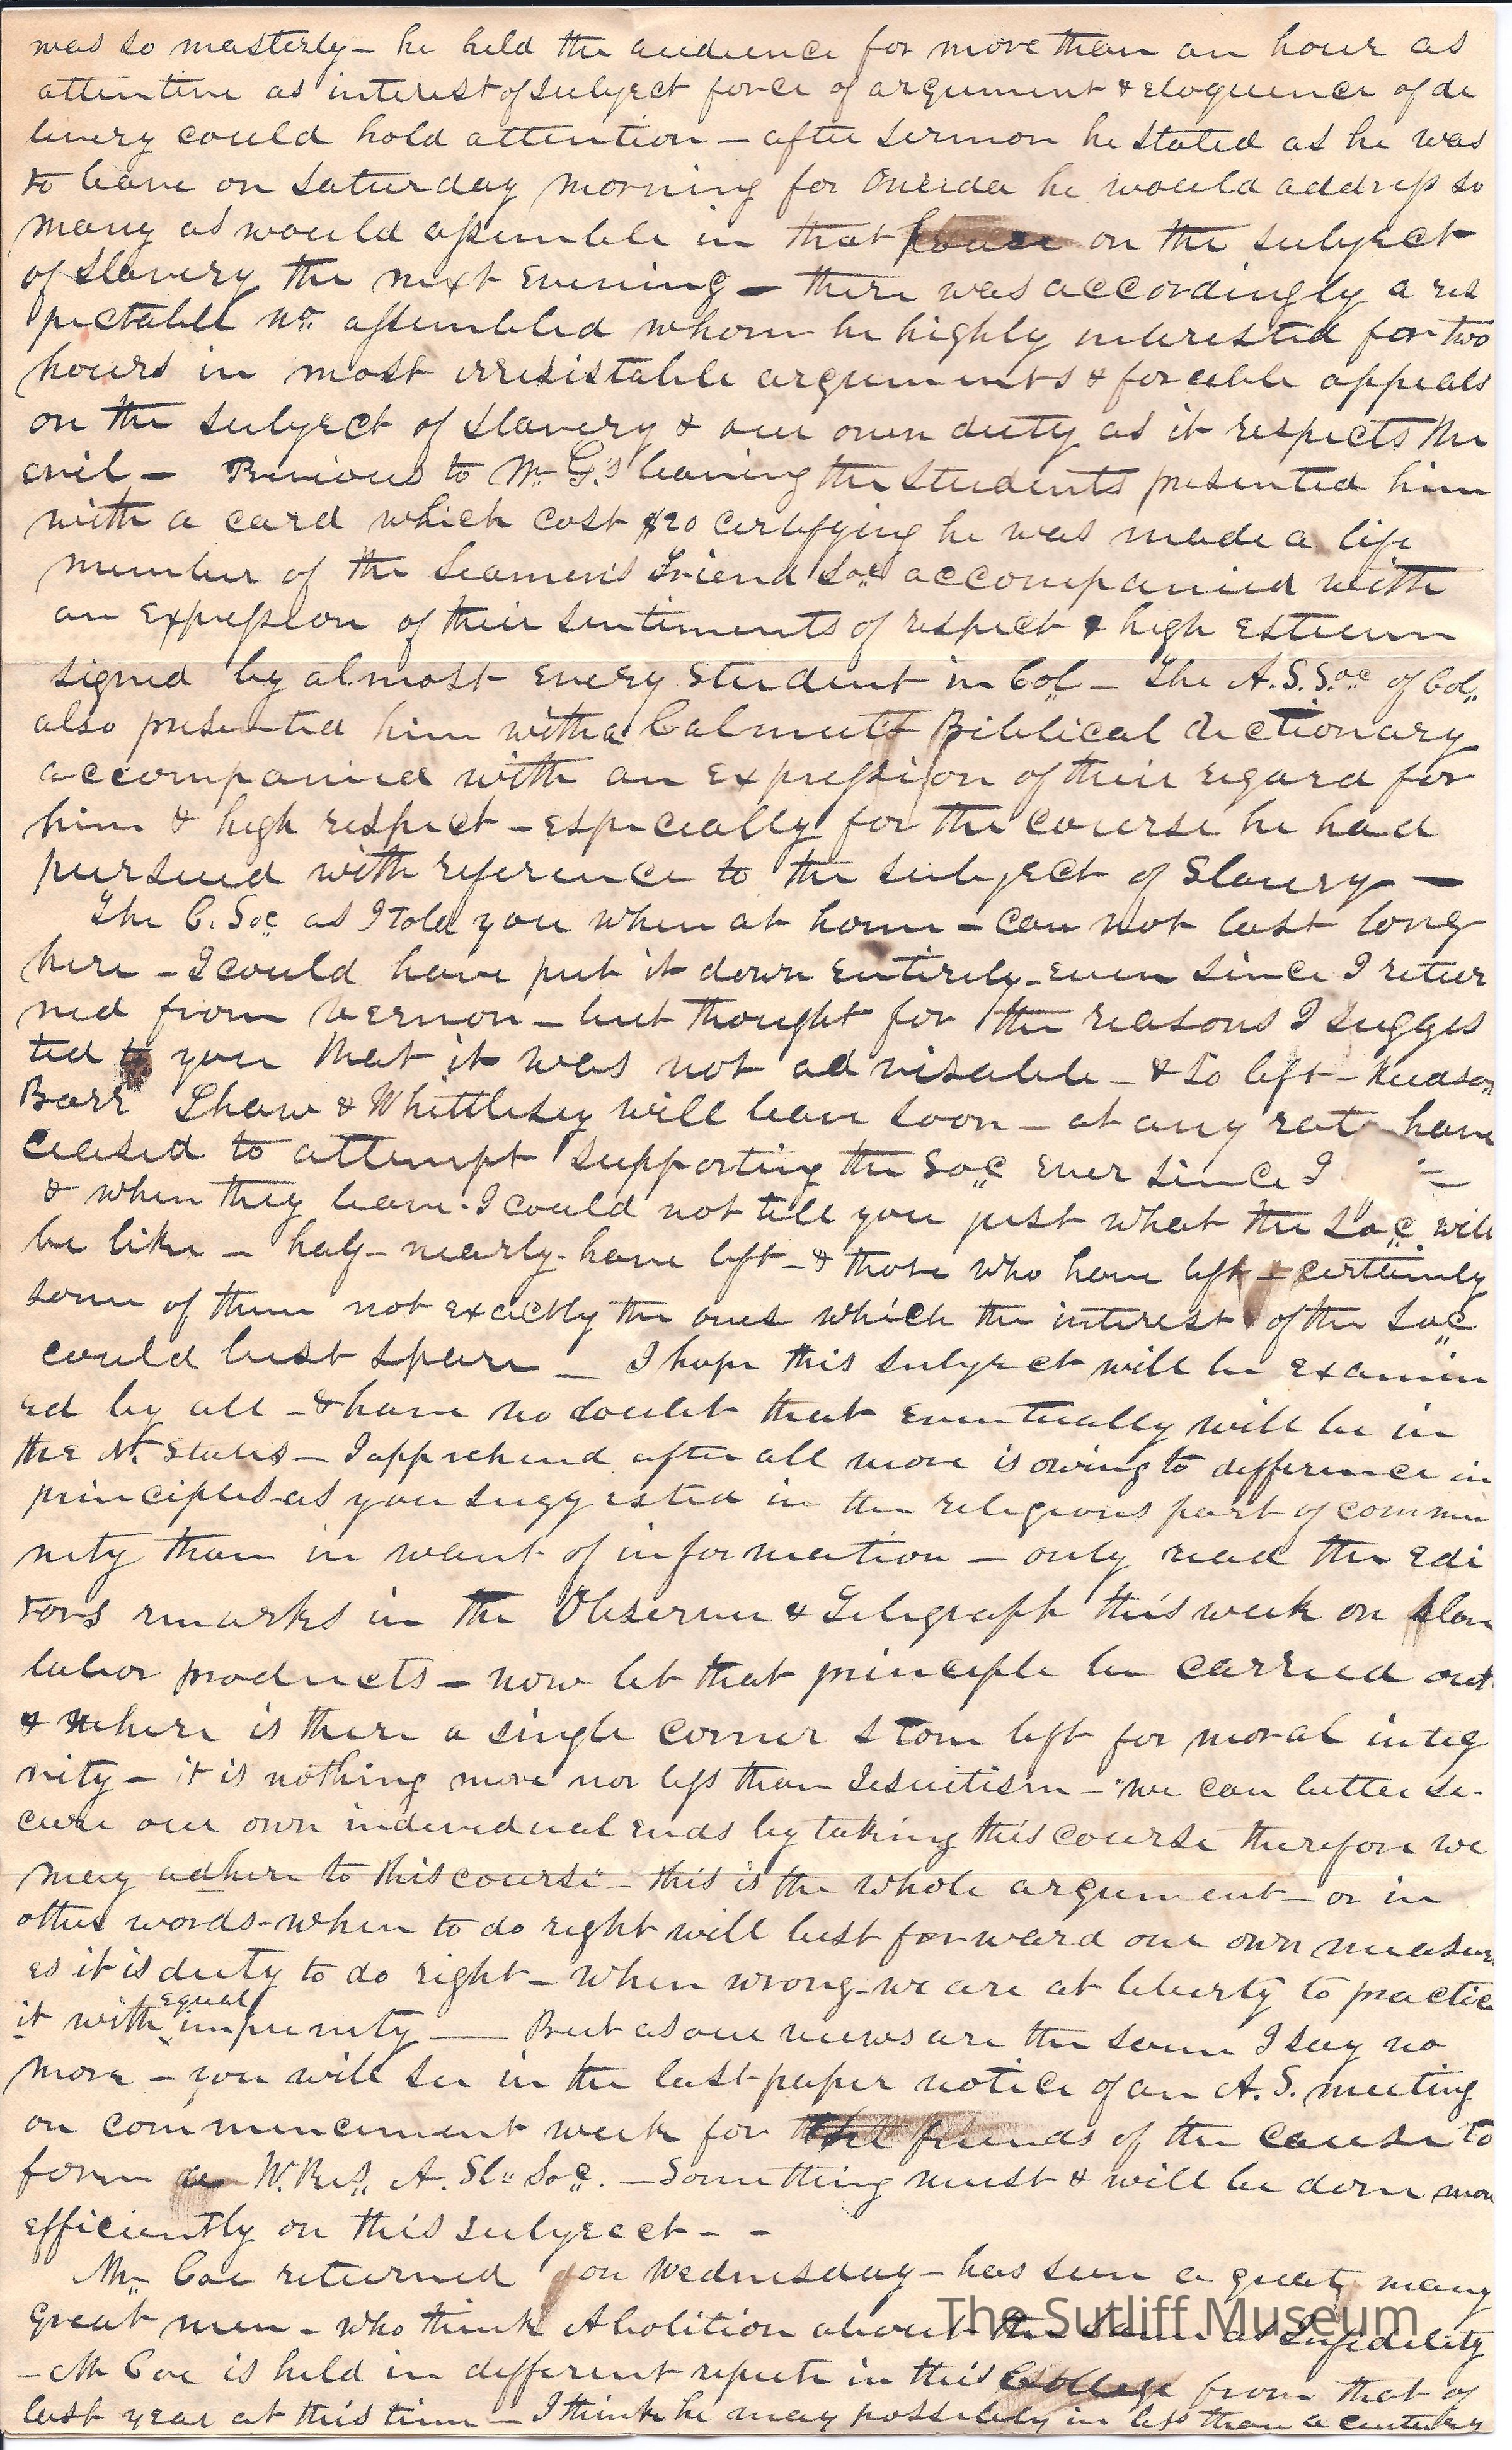 was so masterly – he held the audience for more than an hour as
attentive as interest of subject force of argument & eloquence of de
livery could hold attention – after sermon he stated as he was
to leave on Saturday morning for Oneida he would address so
many as would assemble in that house on the subject
of slavery the next evening – there was accordingly a res
pectable no. assembled whom he highly interested for two
hours in most irresistable arguments & forceble appeals
on the subject of slavery & our own duty as it respects the
evil – Previous to Mr. G's leaving the students presented him
with a card which cost $20 certifying he was made a life
member of the Seamen's Friend Soc. accompanied with
an expression of their sentiments of respect & high esteem
signed by almost every student in Col – The A.S. Soc. of Col.
also presented him with a Calmutt Biblical dictionary
accompanied with an expression of their regard for
him & high respect – especially for the course he had
pursued with reference to the subject of Slavery –
The C. Soc. as I told you when at home – can not last long
here – I could have put it down entirely – even since I retur
ned from Vernon – but thought for the reasons I sugges
ted to you that it was not advisable – & so left – Hudson
Barr Shaw & Whittlesey will leave soon – at any rate have
ceased to attempt supporting the Soc. ever since I
& when they leave – I could not tell you just what the Soc. will
be like – half – nearly – have left – & those who have left – certainly
some of them not exactly the ones which the interest of the Soc.
could best spare – I hope this subject will be examin
ed by all – & have no doubt that eventually will be in
the N. States – I apprehend after all more is owing to difference in
principles – as you suggested in the religious part of commu
nity than in want of information – only read the edi
tors remarks in the Observer & Telegraph this week on slav
labor products – now let that principle be carried out
& where is there a single corner stone left for moral integ
rity – it is nothing more nor less than Jesuitism – "we can better se-
cure our own individual ends by taking this course therefore we
may adhere to this course" – this is the whole argument – or in
other words – when to do right will best forward our own measur
es it is duty to do right – when wrong – we are at liberty to practice
it with equal impunity — But as our views are the same I say no
more – you will see in the last paper notice of an A.S. meeting
on commencement week for the friends of the cause to
form a W. Res. A. Sl. Soc. – Something must & will be done more
efficiently on this subject – –
Mr. Coe returned on Wednesday – has seen a great many
great men – who think Abolition about the same as Infidelity
– Mr Coe is held in different repute in this College from that of
last year at this time – I think he may possibly in less than a century
The Sutliff Museum